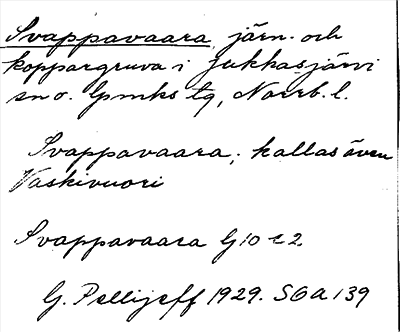 Svappavaara, järn- och
koppargruva i Jukkasjärvi
sn o. lpmks tg, Norrb. l.
Svappavaara; kallas även
Vaskivuori
Svappavaara G 10 e 2
G. Pellijeff 1929. SOA 139